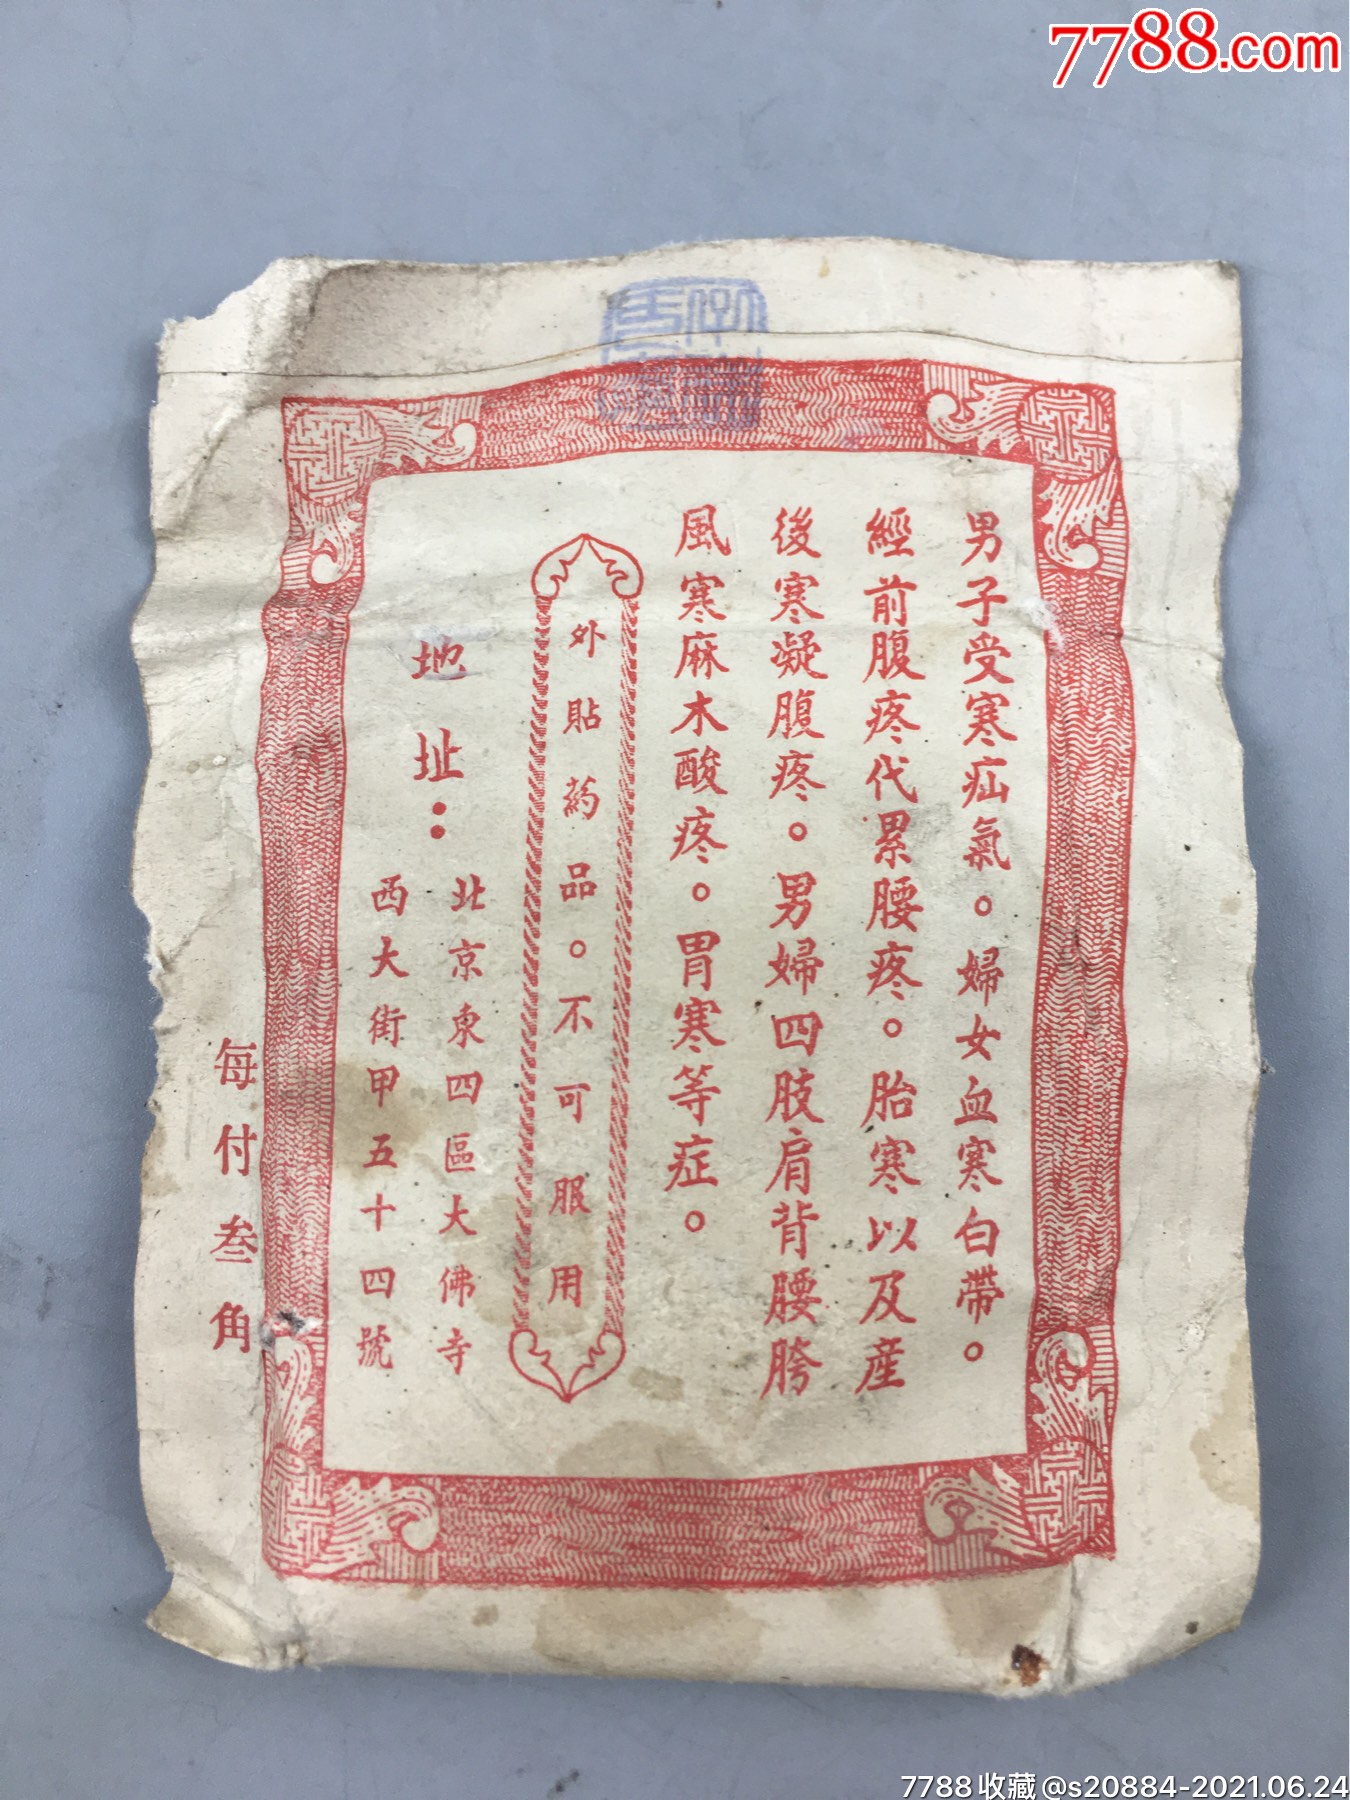 7788.com
男子受寒疝氣。婦女血寒白帶。
經前腹疼代累腰疼。胎寒以及產
後寒凝腹疼。男婦四肢肩背腰胯
風寒麻木酸疼。胃寒等症。
外貼葯品。不可服用
地址：
北京東四區大佛寺
西大街甲五十四號
每付叁角
7788收藏@s20884-2021.06.24